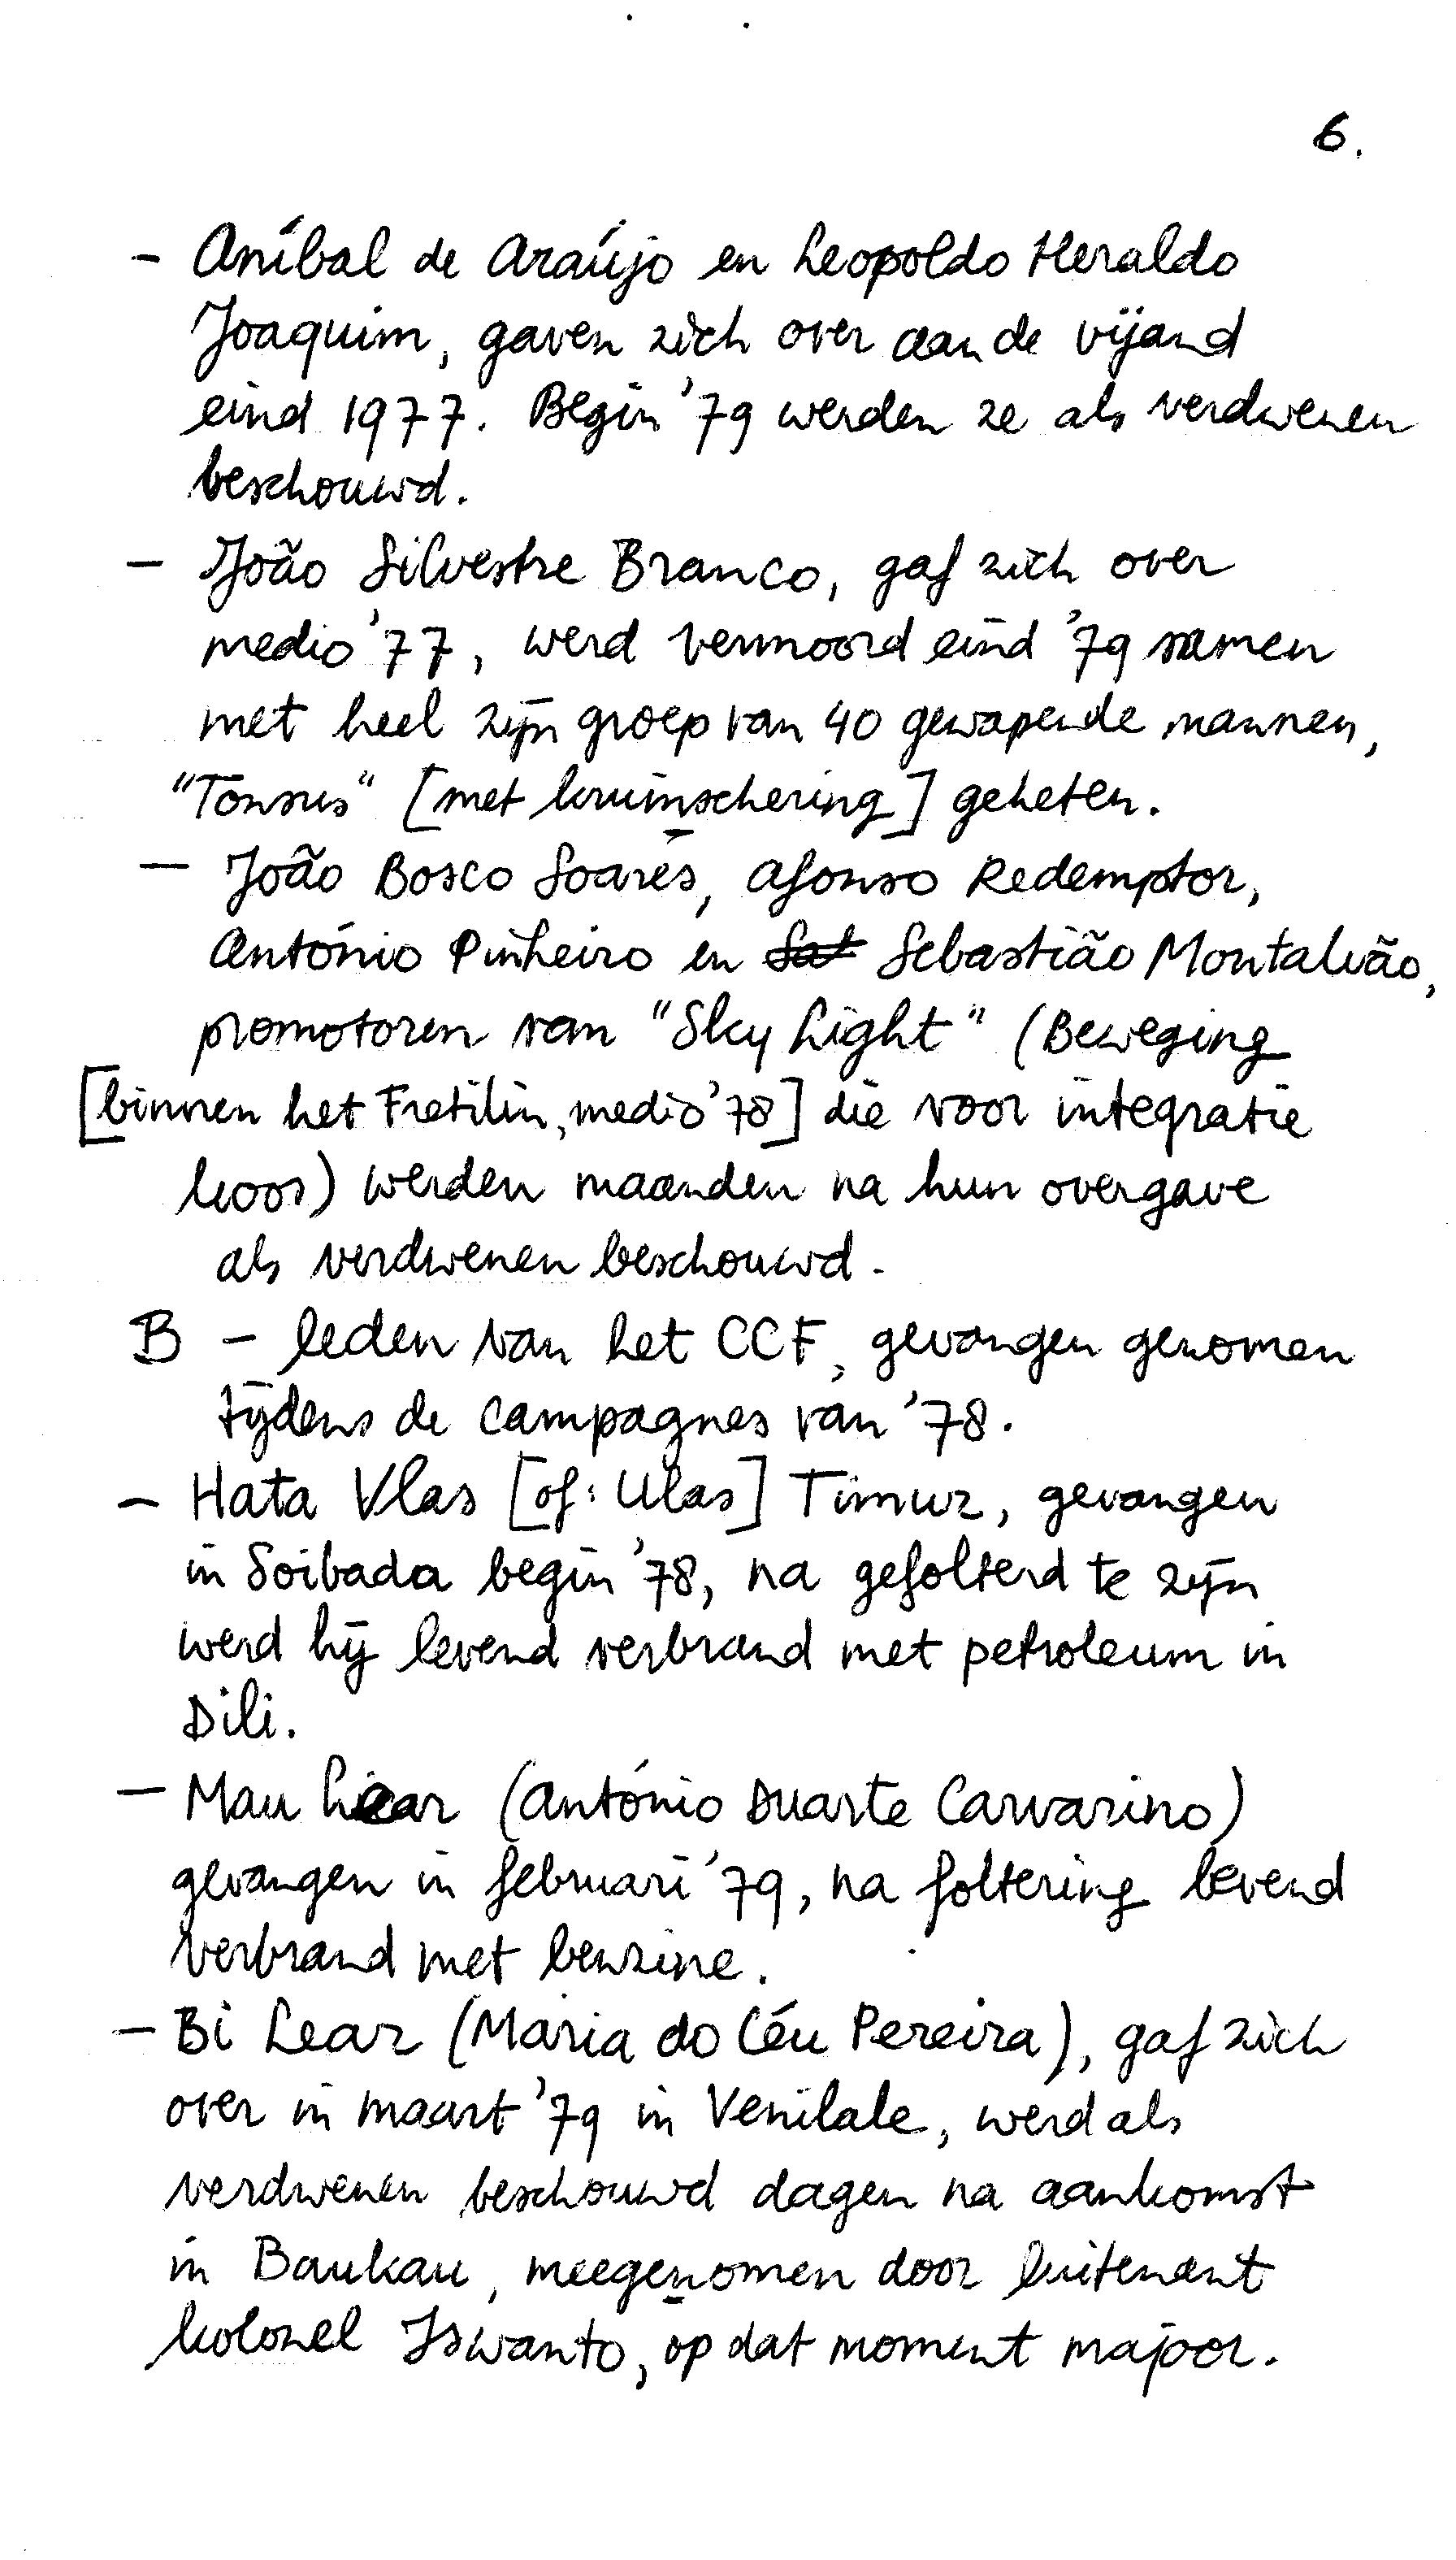 6.
- Aníbal de Araújo en Leopoldo Heraldo
Joaquim, gaven zich over aan de vijand
eind 1977. Begin '79 werden ze als verdwenen
beschouwd.
- João Silvestre Branco, gaf zich over
medio '77, werd vermoord eind '79 samen
met heel zijn groep van 40 gewapende mannen,
"Tonsus" [met kruinschering] geheten.
- João Bosco Soares, Afonso Redemptor,
António Pinheiro en Sebastião Montalvão,
promotoren van "Sky Light" (Beweging
[binnen het Fretilin, medio '78] die voor integratie
koos) werden maanden na hun overgave
als verdwenen beschouwd.
B - leden van het CCF, gevangen genomen
tijdens de campagnes van '78.
- Hata Vlas [of: Ulas] Timur, gevangen
in Soibada begin '78, na gefolterd te zijn
werd hij levend verbrand met petroleum in
Dili.
- Mau Lear (António Duarte Carvarino)
gevangen in februari '79, na foltering levend
verbrand met benzine.
- Bi Lear (Maria do Céu Pereira), gaf zich
over in maart '79 in Venilale, werd als
verdwenen beschouwd dagen na aankomst
in Baukau, meegenomen door luitenant
kolonel Iswanto, op dat moment majoor.